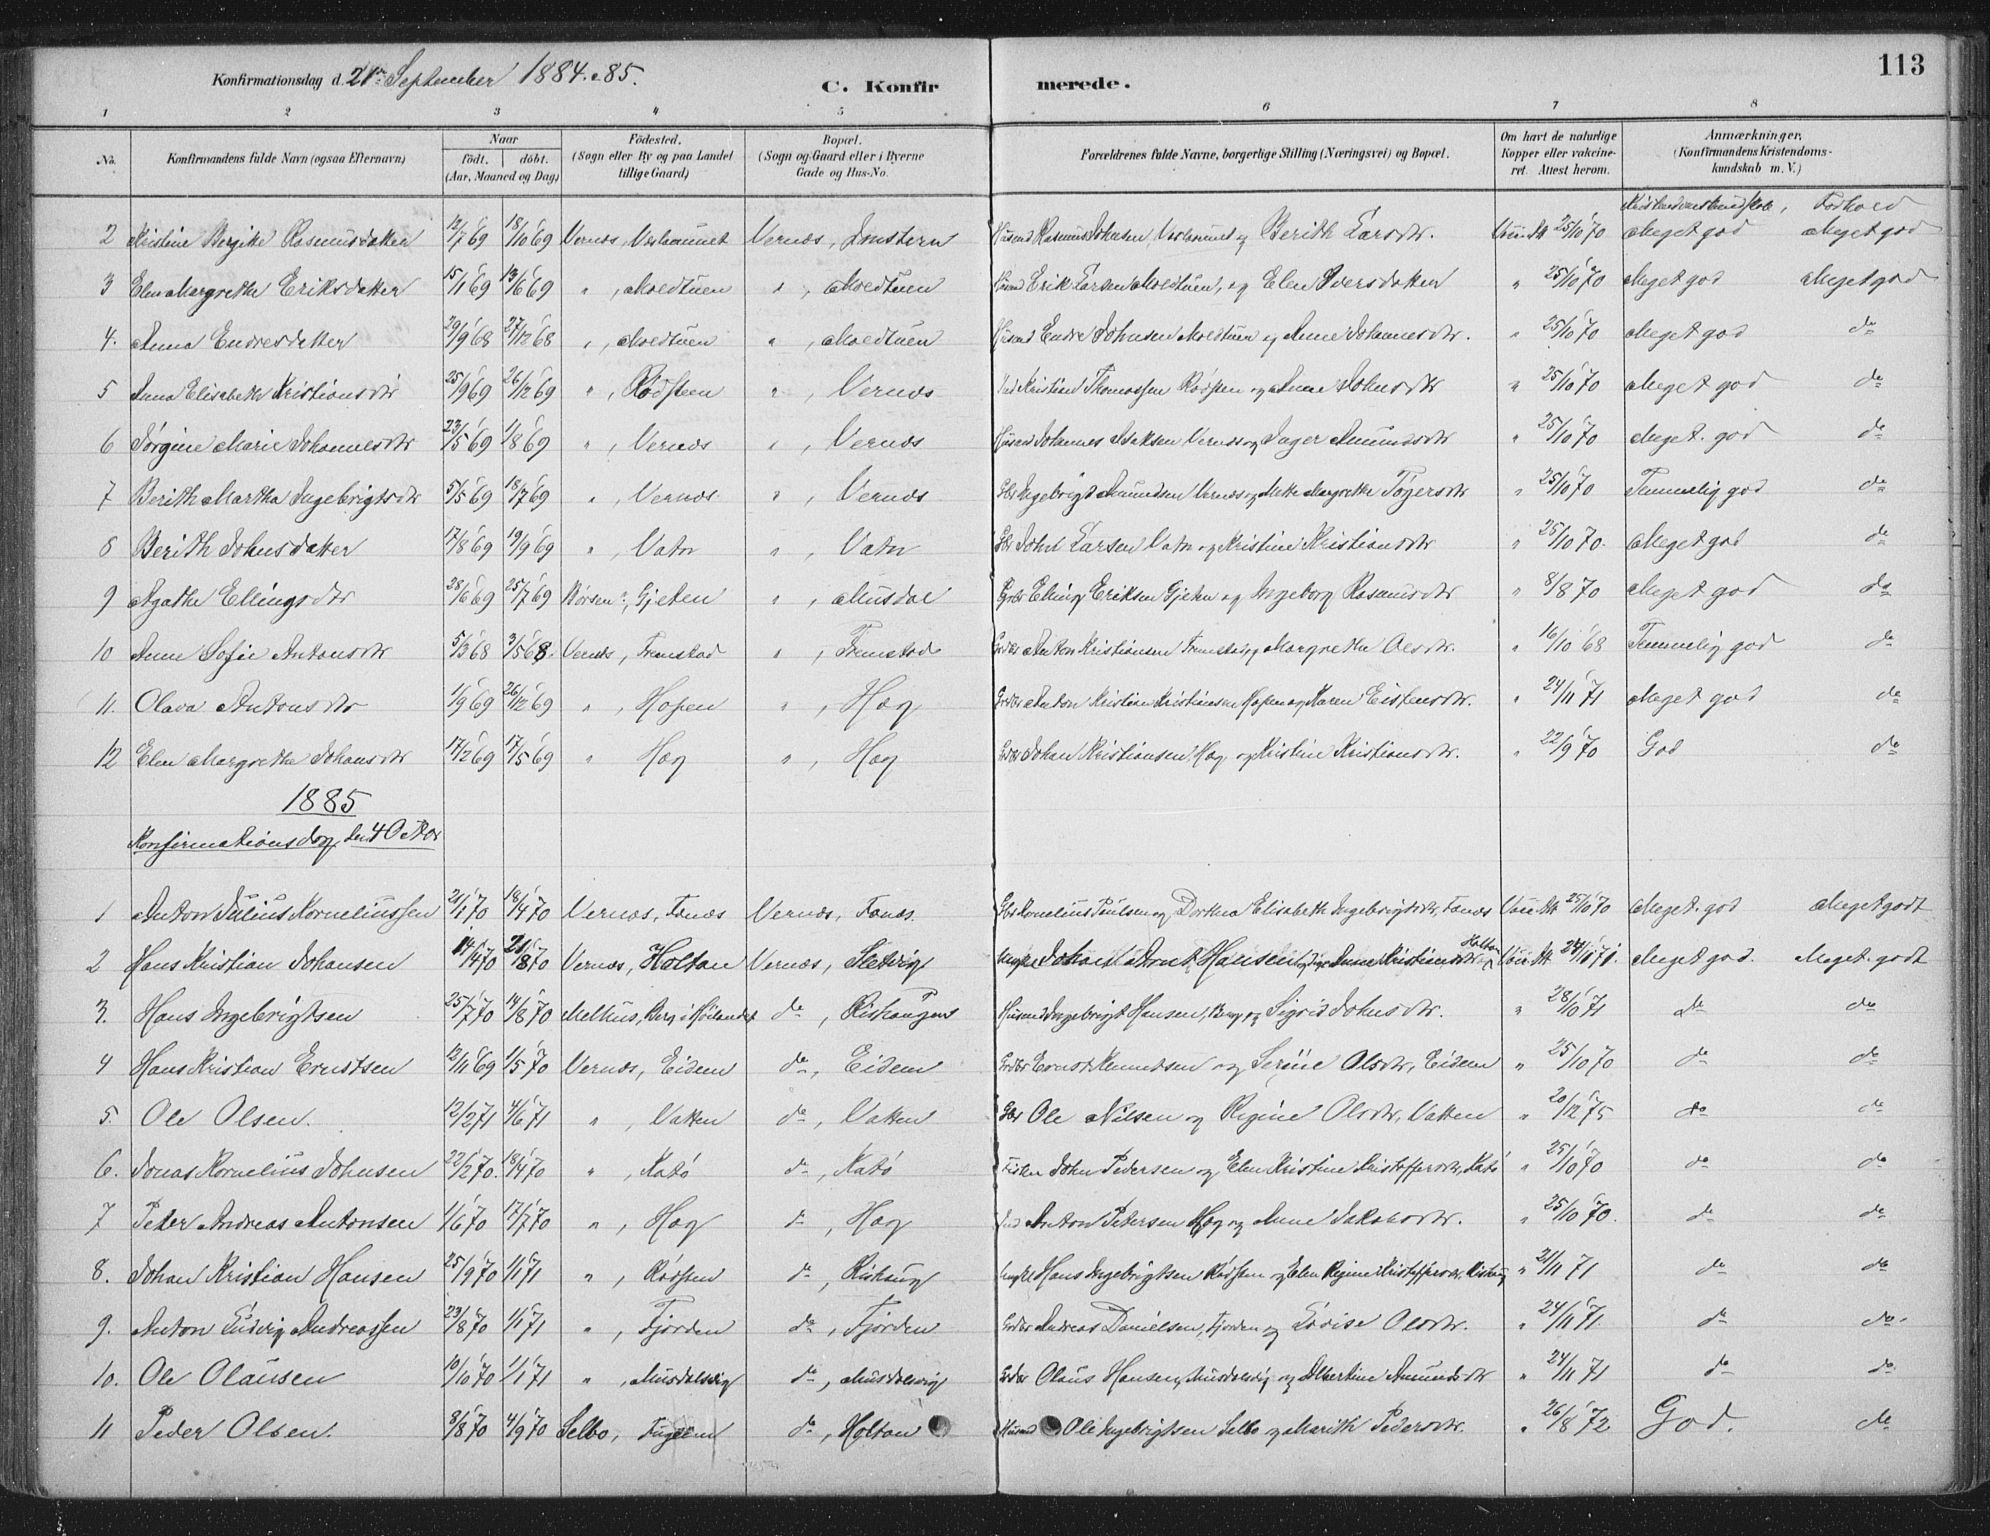 113
Konfirmationsdag d. 21de September 1884. 85. C. Konfirmerede.
1 2 3 4 5 6 7 8
No. Konfirmandens fulde Navn (ogsaa Efternavn) Naar født. døbt. (Aar, Maaned og Dag) Fødested. (Sogn eller By og paa Landet tillige Gaard) Bopæl. (Sogn og Gaard eller i Byerne Gade og Hus-No. Forældrenes fulde Navne, borgerlige Stilling (Næringsvei) og Bopæl. Om havt de naturlige Kopper eller vakcineret. Attest herom. Anmærkninger, (Konfirmandens Kristendomskundskab m. V.)
Kristendomskundskab, Forhold
2 Kristine Bergitte Rasmusdatter 12/7 69 18/10 69 Vernæs, Vernæs, Husmd Rasmus Johnsen og Berith Larsdtr. 25/10 70 Meget god Meget god
3 Elen Margrethe Eriksdatter 15/1 69 13/6 69 " , Moldtuen " , Moldtuen Husmd Erik Larsen Moldtuen, og Elen Iversdatter " 25/10 70 Meget god Meget god
4. Anna Endresdatter 29/9 68 27/12 68 " , Moldtuen " , Moldtuen Husmd Endre Johnsen Moldtuen og Anne Johannesdtr. " 25/10 70 Meget god do
5 Anna Elisabeth Kristiansdtr 25/9 69 26/12 69 " , Rødsteen " , Vernæs Kristian Thomassen Rødsten og Anne Johnsdtr " 25/10 70 Meget god do
6 Jørgine Marie Johannesdtr 23/5 69 1/8 69 " , Vernæs " , Vernæs Husmd Johannes Isaksen Vernæs og Inger Amundsdtr " 25/10 70 Meget. god do
7 Berith Martha Ingebrigtsdtr 5/5 69 18/7 69 " , Vernæs " , Vernæs Gbr Ingebrigt Amundsen Vernæs og Mette Margrethe Tøgersdtr " 25/10 70 Temmelig god do
8 Berith Johnsdatter 17/8 69 19/9 69 " , Vatn " , Vatn Gbr John Larsen Vatn og Kristine Kristiansdtr " 25/10 70. Meget god do
9 Agathe Ellingsdtr 28/6 69 25/7 69 Børsen?, Gjeten " , Musdal Elling Eriksen Gjeten og Ingeborg Rasmusdtr " 8/8 70 Meget god do
10 Anne Sofie Antonsdtr 5/3 68 3/5 68. Vernæs, Fremstad " , Fremstad Grdbr Anton Kristiansen Fremstad og Margrethe Olsdtr. " 16/10 68 Temmelig god do
11. Olava Antonsdtr 1/9 69 26/12 69 " , Hopen " , Hog Grdbr Anton Kristian Kristiansen Hopen og Karen Eistensdtr. " 24/11 71 Meget god do
12 Elen Margrethe Johansdtr 17/2 69 17/5 69 " Hog " , Hog Grdbr Johan Kristiansen Hog og Kristine Kristiansdtr. " 22/9 70 God do
1885
Konfirmationsdag den 4 Oktbr
1 Anton Julius Korneliussen 21/1 70 18/4 70 Vernæs, Fanæs Vernæs, Fanæs. Gbr Kornelius Paulsen og Dorthea Elisabeth Ingebrigtsdtr, Fanæs 25/10 70 Meget. god Meget godt
2 Hans Kristian Johansen 14/4 70 21/8 70 Vernæs, Holtan Vernæs, Sletvig Johan Arnt Hansen og Anne Kristiansdtr. Holtan 24/11 71. Meget god. Meget. godt
3. Hans Ingebrigtsen 25/7 70 14/8 70 Melhus, Berg i Høilandet do , Rishaugen Husmd Ingebrigt Hansen, Berg og Sigrid Johnsdtr. " 28/10 71 do do
4 Hans Kristian Ernstsen 12/11 69 1/5 70 Vernæs, Eidem do, Eidem Grdbr Ernst Knudsen og Serine Olsdtr, Eidem " 25/10 70 do do
5. Ole Olsen. 12/2 71 4/6 71 " , Vatten do, Vatten Gbr Ole Nilsen og Regine Olsdtr, Vatten " 20/12 75 do do
6. Jonas Kornelius Johnsen 22/2 70. 18/4 70 " , Katø do, Katø John Pedersen og Elen Kristine Kristoffersdtr, Katø " 25/10 70 do do
7 Peter Andreas Antonsen 1/6 70 17/7 70 " , Hog do , Hog Anton Petersen Hog og Anne Jakobsdtr. " 25/10 70. do do
8. Johan Kristian Hansen 25/9 70 1/1 71 " , Rødsten do , Rishaug Hans Ingebrigtsen Rødsten og Elen Regine Kristoffersdtr, Rishaug " 21/11 71 do do
9. Anton Ludvig Andreassen 23/8 70 1/1 71 " , Fjorden do, Fjorden Grdbr Andreas Danielsen, Fjorden og Lovise Olsdtr. " 24/11 71. do do.
10. Ole Olausen 10/10 70 1/1 71 " , Musdalsvig do, Musdalsvig Grdbr Olaus Hansen, Musdalsvig og Albertine Amundsdtr " 24/11 71 do do
11 Peder Olsen. 8/8 70 4/9 70 Selbo, Fugleem do, Holtan Husmd Ole Ingebrigtsen Selbo og Marith Pedersdtr. " 26/8 72 God. do